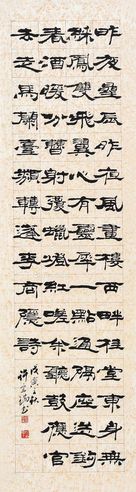 昨夜星辰昨夜風畫樓西畔桂堂東身無
彩鳳雙飛翼心有靈犀一點通隔座送鉤
春酒暖分曹射覆蠟燈紅嗟余聽鼓應官
去走馬蘭臺類轉蓬李商隱詩
戊寅秋